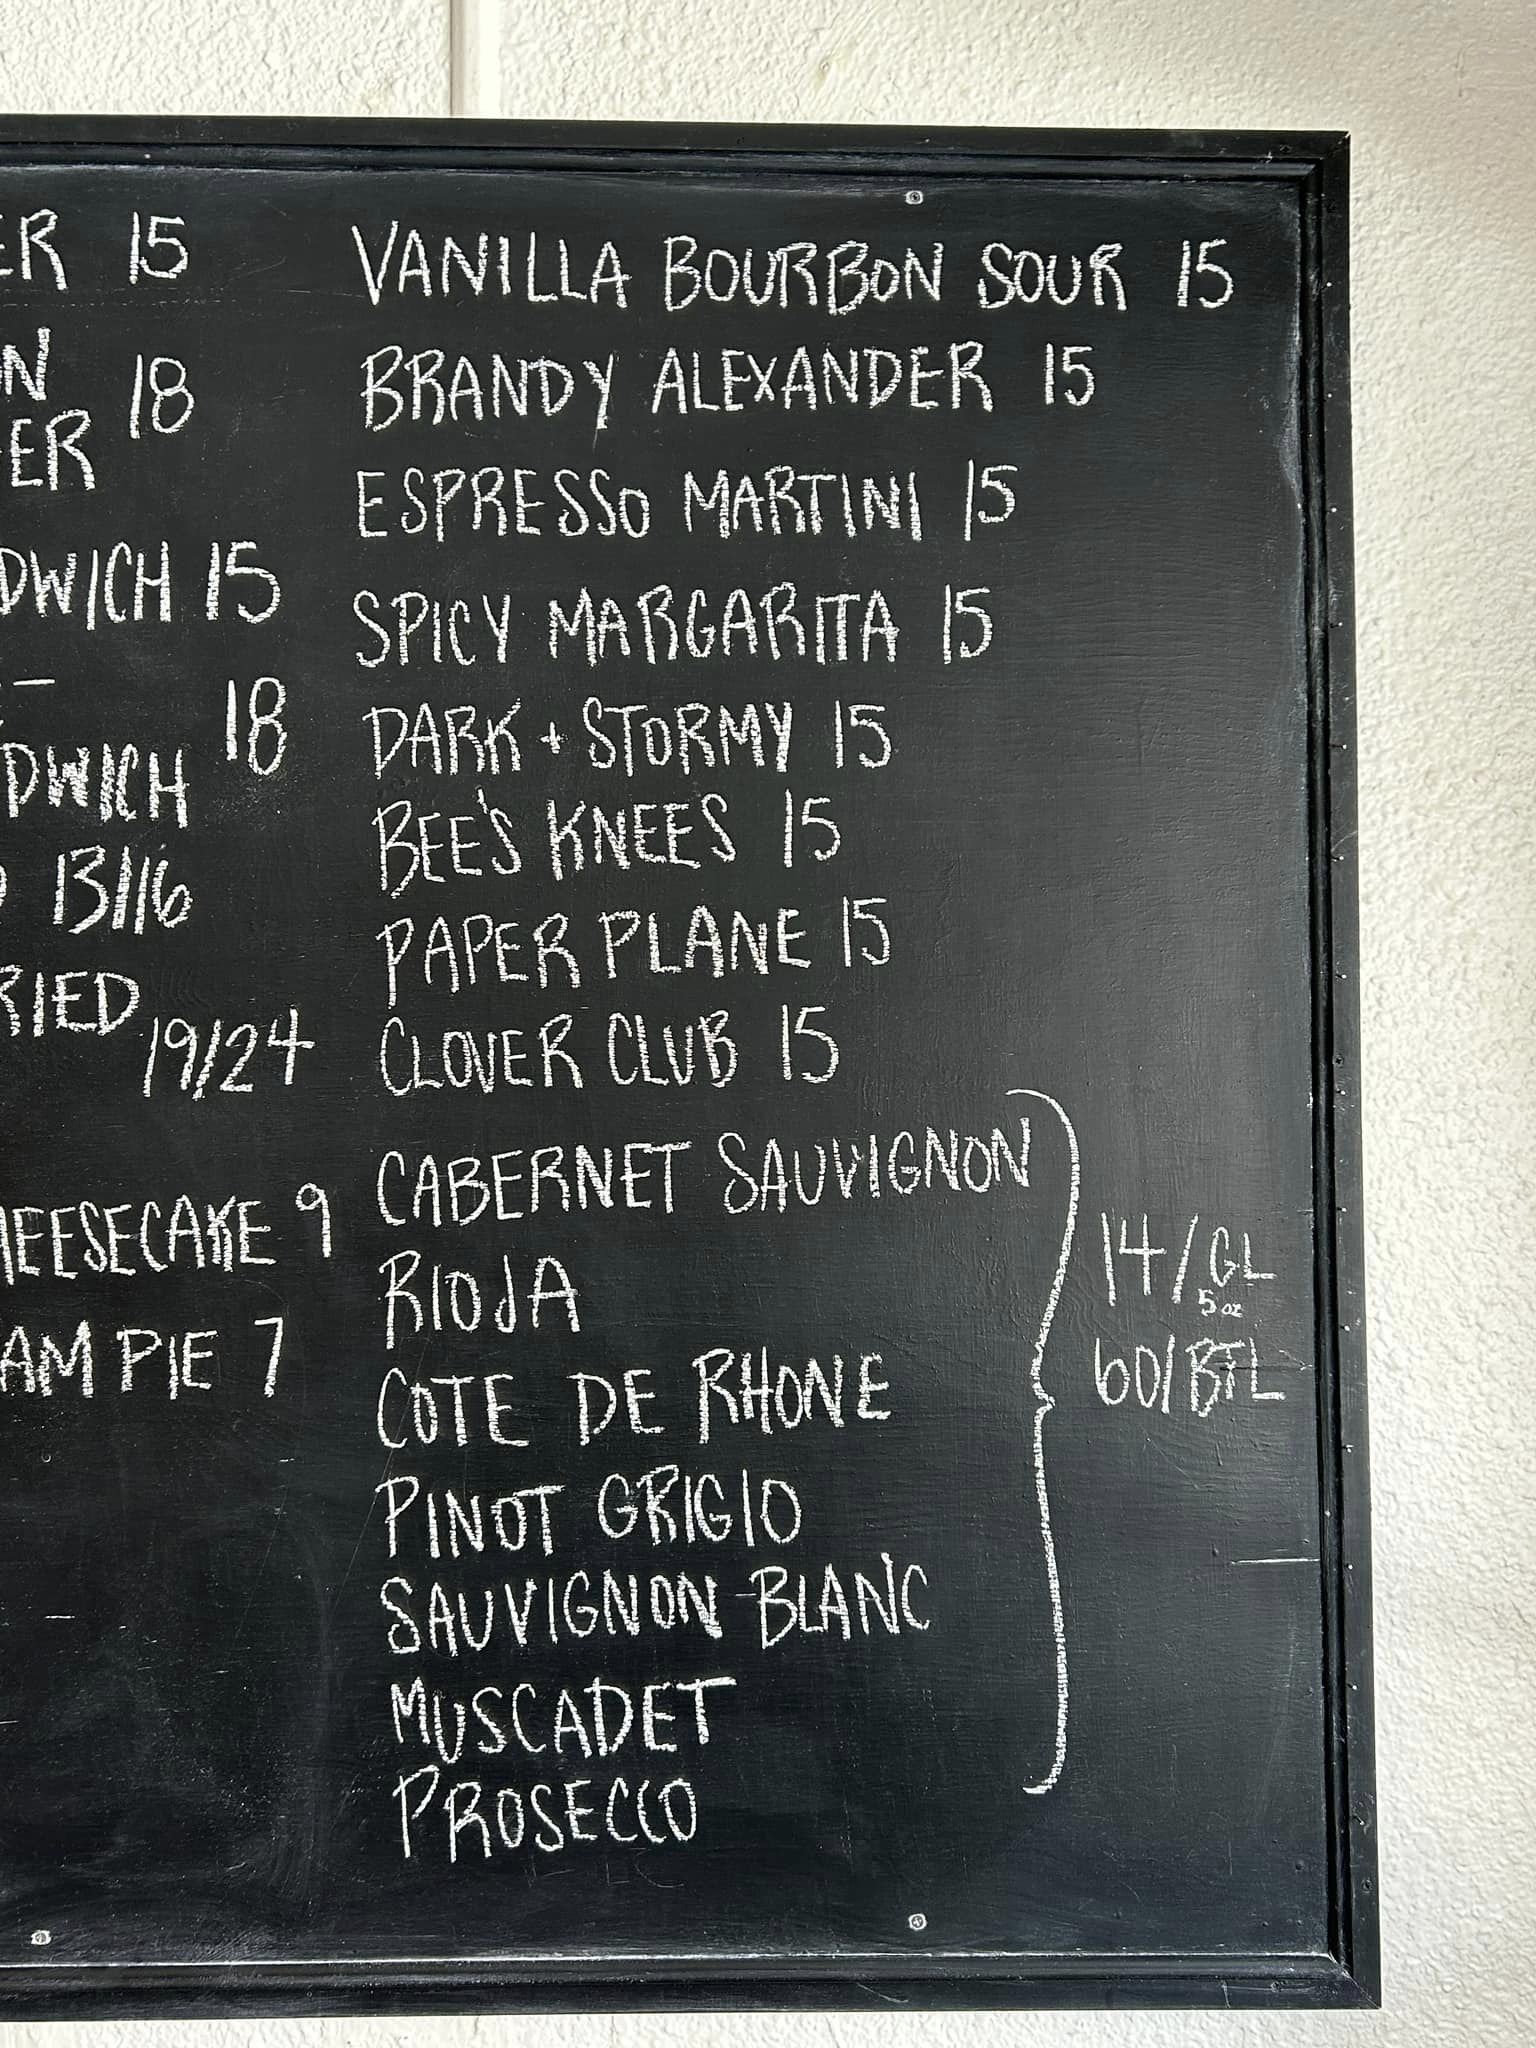 ER 15
ON 18
ER
DWICH 15
18
DWICH
13/16
RIED
19/24
HEESECAKE 9
AM PIE 7
VANILLA BOURBON SOUR 15
BRANDY ALEXANDER 15
ESPRESSO MARTINI 15
SPICY MARGARITA 15
DARK + STORMY 15
BEE'S KNEES 15
PAPER PLANE 15
CLOVER CLUB 15
CABERNET SAUVIGNON
RIOJA
COTE DE RHONE
PINOT GRIGIO
SAUVIGNON BLANC
MUSCADET
PROSECCO
14/GL
5 oz
60/BTL